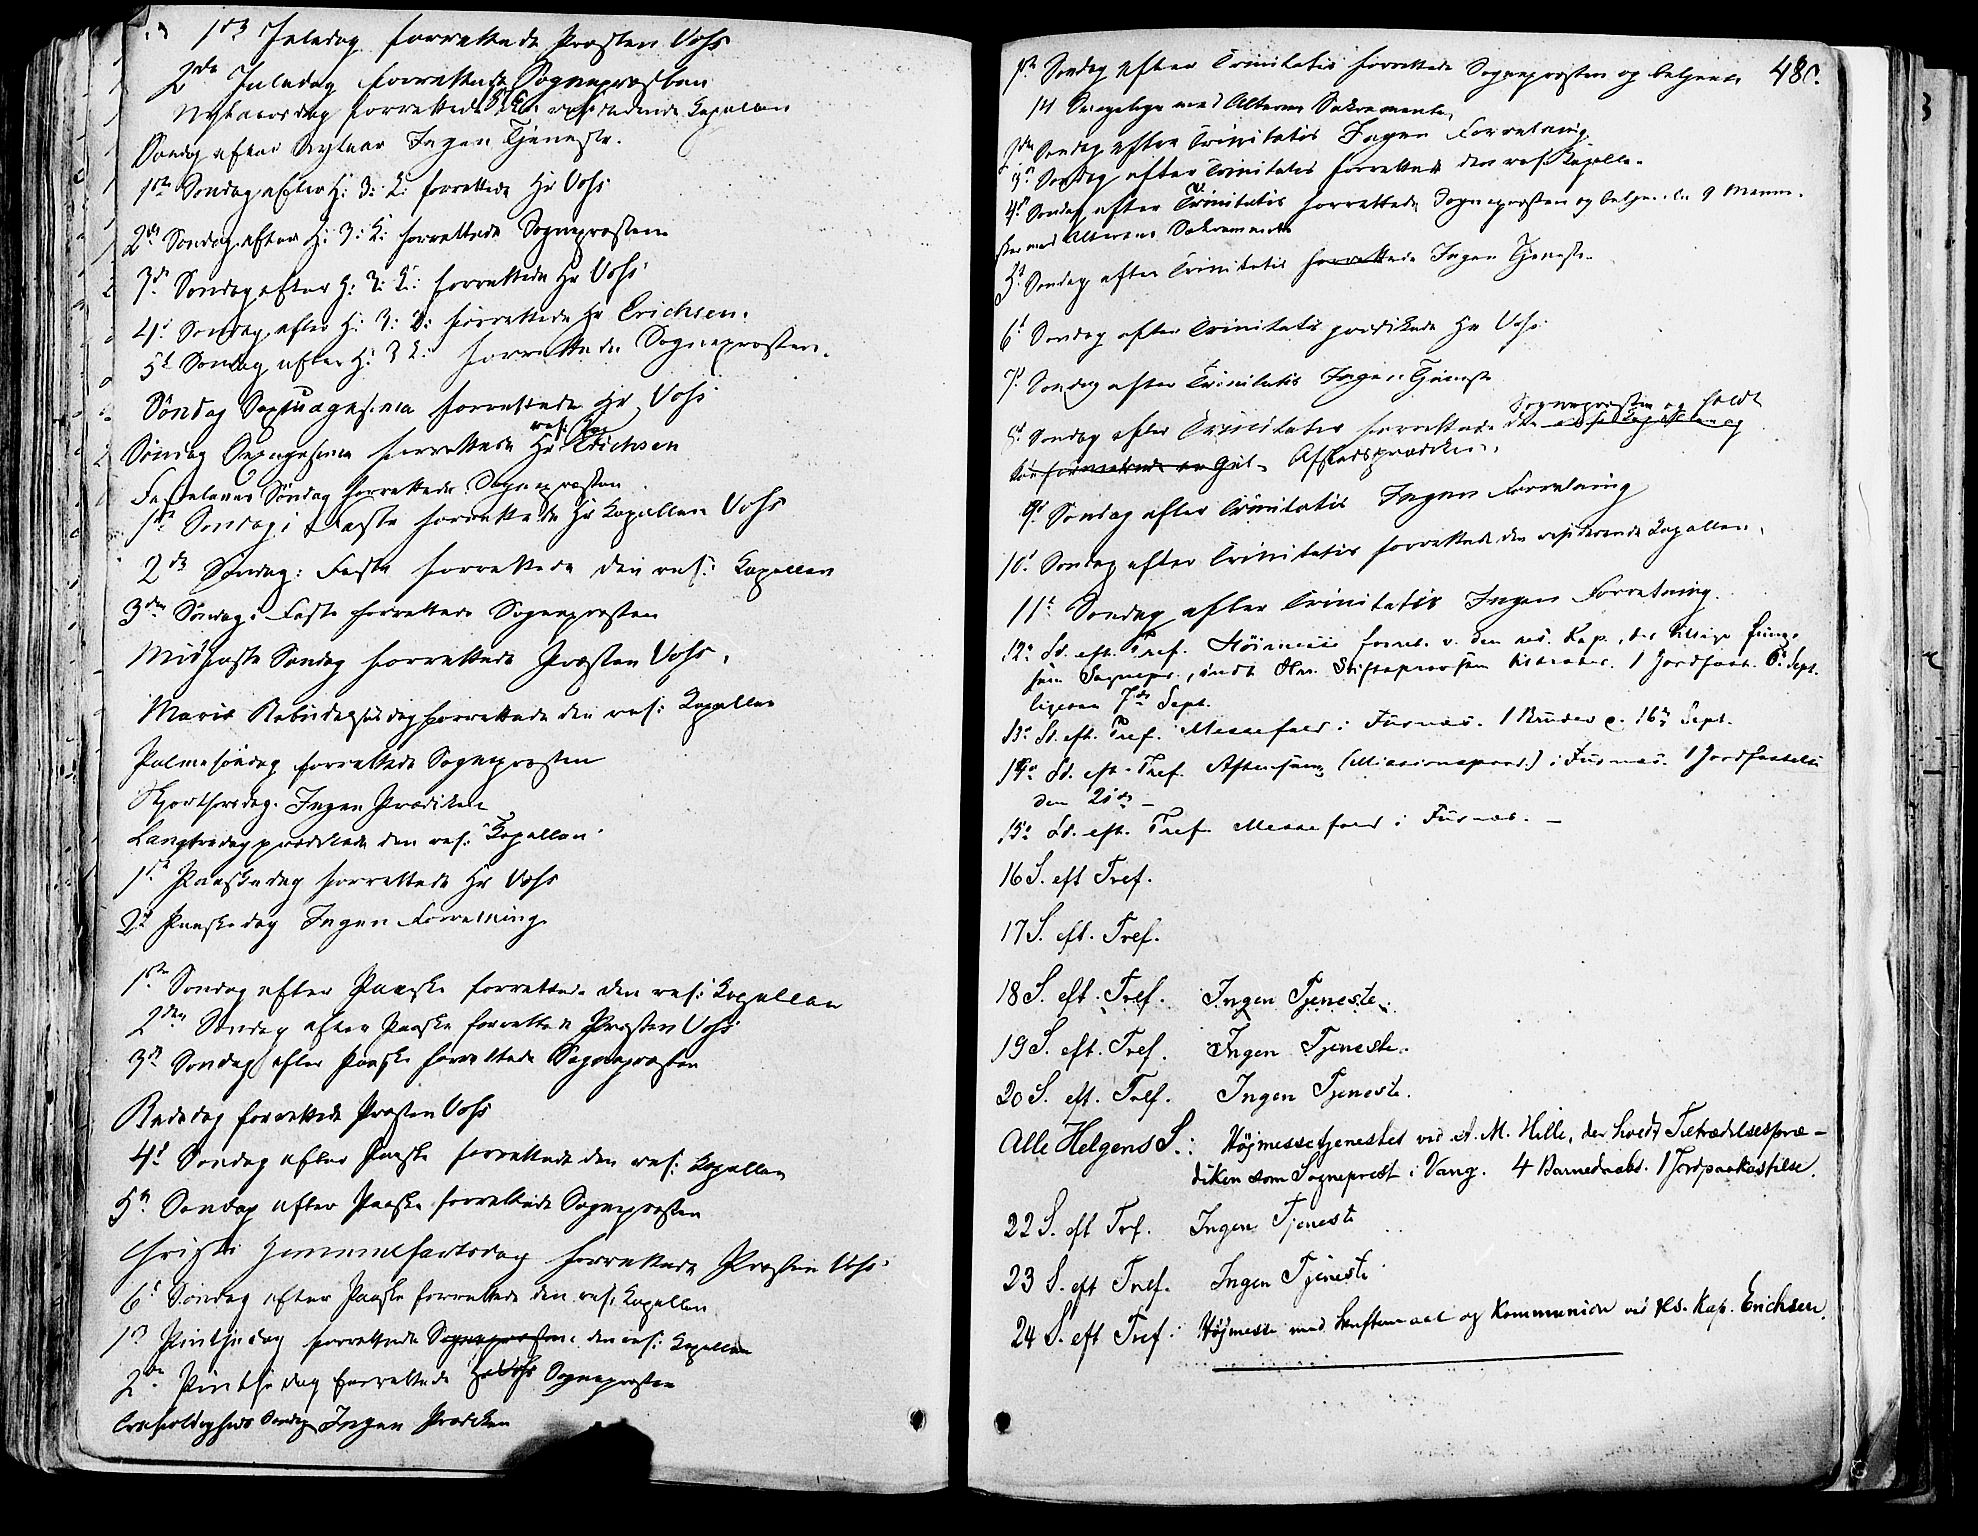 1ste Juledag forrettede Præsten Vohs
2den Juledag forrettede Sognepræsten
Nytaarsdag forrettede residerende Kapellan
Søndag efter Nytaar Ingen Tjeneste.
1ste Søndag efter H: 3: K: forrettede Hr Vohs
2den Søndag efter H: 3: K: forrettede Sognepræsten
3de Søndag efter H: 3: K: forrettede Hr Vohs
4de Søndag efter H: 3: K: forrettede Hr Erichsen.
5te Søndag efter H: 3 K: forrettede Sognepræsten.
Søndag Septuagesima forrettede Hr Vohs
res: Kap
Søndag Sexagesima forrettede Hr Erichsen
Fastelavns Søndag forrettede Sognepræsten
1ste Søndag i Faste forrettede Hr Kapellan Vohs
2de Søndag i Faste forrettede den res: Kapellan
3den Søndag i Faste forrettede Sognepræsten
Midfaste Søndag forrettede Præsten Vohs.
Mariæ Bebudelsesdag forrettede den res: Kapellan
Palmesøndag forrettede Sognepræsten
Skjærthorsdag. Ingen Prædiken
Langfredag prædikede den res: Kapellan
1ste Paaskedag forrettede Hr Vohs
2d Paaskedag Ingen Forretning
1ste Søndag efter Paaske forrettede den res: Kapellan
2den Søndag efter Paaske forrettede Præsten Vohs
3de Søndag efter Paaske forrettede Sognepræsten
Bededag forrettede Præsten Vohs
4de Søndag efter Paaske forrettede den res: Kapellan
5te Søndag efter Paaske forrettede Sognepræsten
Christi Himmelfartsdag forrettede Præsten Vohs
6te Søndag efter Paaske forrettede den res. Kapellan
1ste Pintsedag forrettede Sognepræsten den res: Kapellan
2den Pintsedag forrettede Hr Vohs Sognepræsten
Trefoldigheds Søndag Ingen Prædiken
480.
1ste Søndag efter Trinitatis forrettede Sognepræsten og betjente
14 med Alterens Sakramente
2den Søndag efter Trinitatis Ingen Forretning
3de Søndag efter Trinitatis forrettede den res. Kapellan
4de Søndag efter Trinitatis forrettede Sognepræsten og betjente 9 Menne-
sker med Alterens Sakramente
5t Søndag efter Trinitatis forrettede Ingen Tjeneste
6t Søndag efter Trinitatis prædikede Hr Vohs
7de Søndag efter Trinitatis Ingen Tjeneste
Sognepræsten og holdt
8de Søndag efter Trinitatis forrettede den res Kapellan og
Afskedsprædiken.
9de Søndag efter Trinitatis Ingen Forretning
10de Søndag efter Trinitatis forrettede den residerende Kapellan.
11te Søndag efter Trinitatis Ingen Forretning.
12te Sd. eft. Tref. Høimesse forret. v. den res. Kap., der tillige
som Sognepr., indt. Hr. Stiftsprovsten tiltræder. 1 Jordfæst. 6te Sept.
ligesaa 7de Sept.
13de Sd. eft. Tref. Messefald i Furnæs. 1 Brudev. d. 16de Sept.
14de Sd. eft. Tref. Aftensang (Missionspræd.) i Furnæs. 1 Jordfæstelse
den 21de -
15de Sd. eft. Tref. Messefald i Furnæs. -
16 S. eft Tref.
17 S. eft. Tref.
18 S. eft. Tref. Ingen Tjeneste.
19 S. eft. Tref. Ingen Tjeneste.
20 S. eft. Tref. Ingen Tjeneste.
Alle Helgens S.: Højmessetjenesten ved A. M. Hille, der holdt Tiltrædelsespræ-
diken som Sogneprest i Vang. 4 Barnedaab. 1 Jordpaakastelse.
22 S. eft Tref. Ingen Tjeneste
23 S. eft Tref. Ingen Tjeneste
24 S. eft Tref: Højmesse med Skriftemaal og Kommunion ved res. Kap. Erichsen.